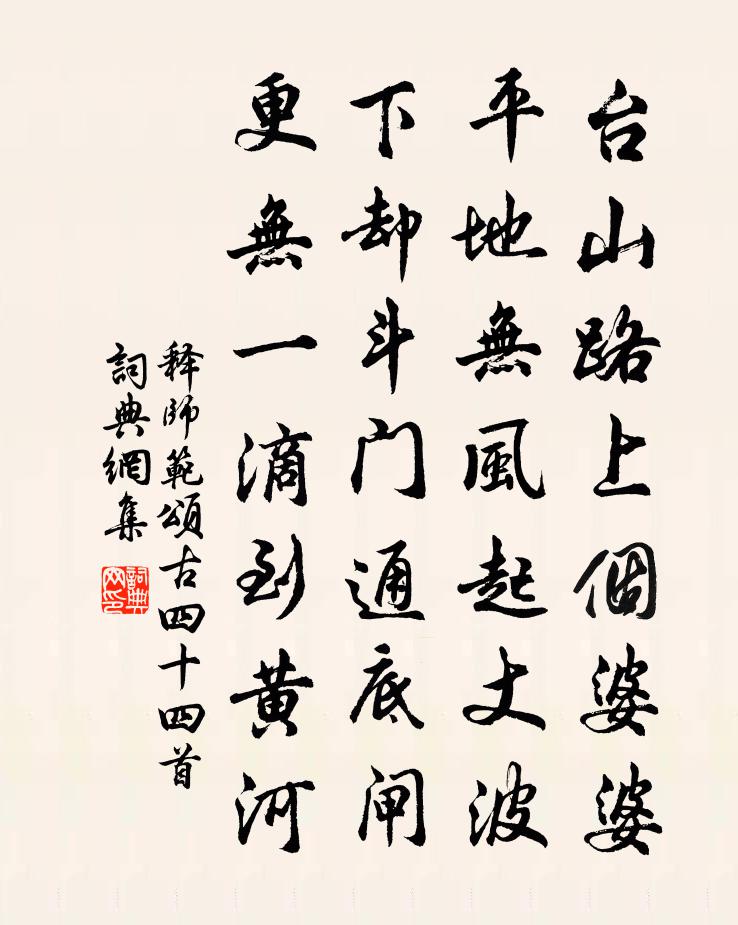 台山路上個婆婆
平地無風起丈波
下却斗門通底閘
更無一滴到黃河
释師範頌古四十四首
詞典網集
詞典
网印